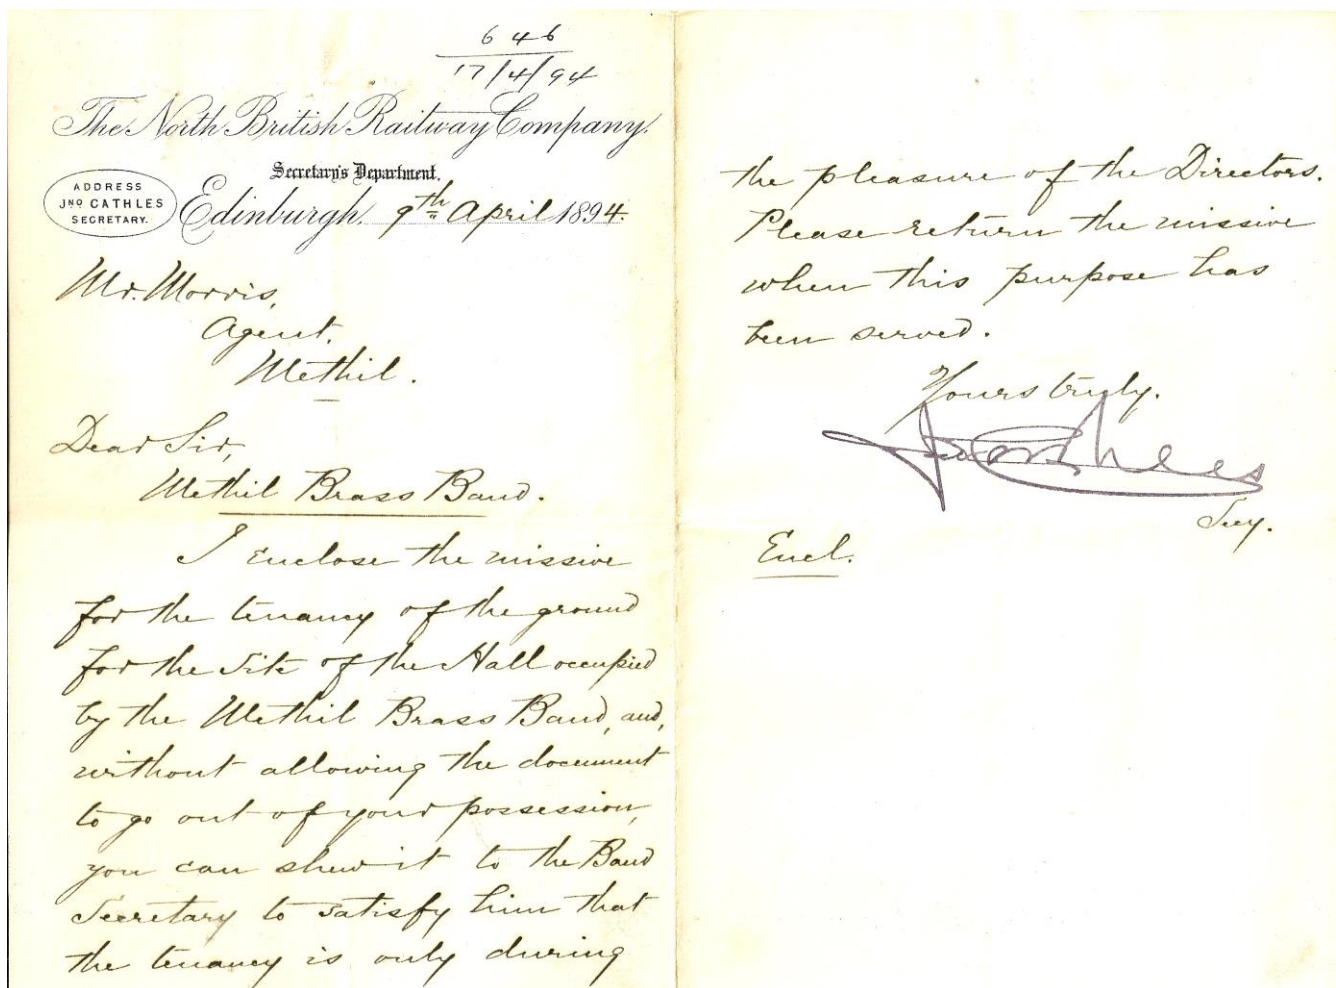 646
17/4/94
The North British Railway Company.
Secretary's Department.
ADDRESS
JNO CATHLES
SECRETARY.
Edinburgh, 9th April 1894.
Mr. Morris,
Agent,
Methil.
Dear Sir,
Methil Brass Band.
I enclose the missive
for the tenancy of the ground
for the site of the Hall occupied
by the Methil Brass Band, and,
without allowing the document
to go out of your possession,
you can shew it to the Band
Secretary to satisfy him that
the tenancy is only during
the pleasure of the Directors.
Please return the missive
when this purpose has
been served.
Yours truly.
Jno Cathles
Secy.
Encl.